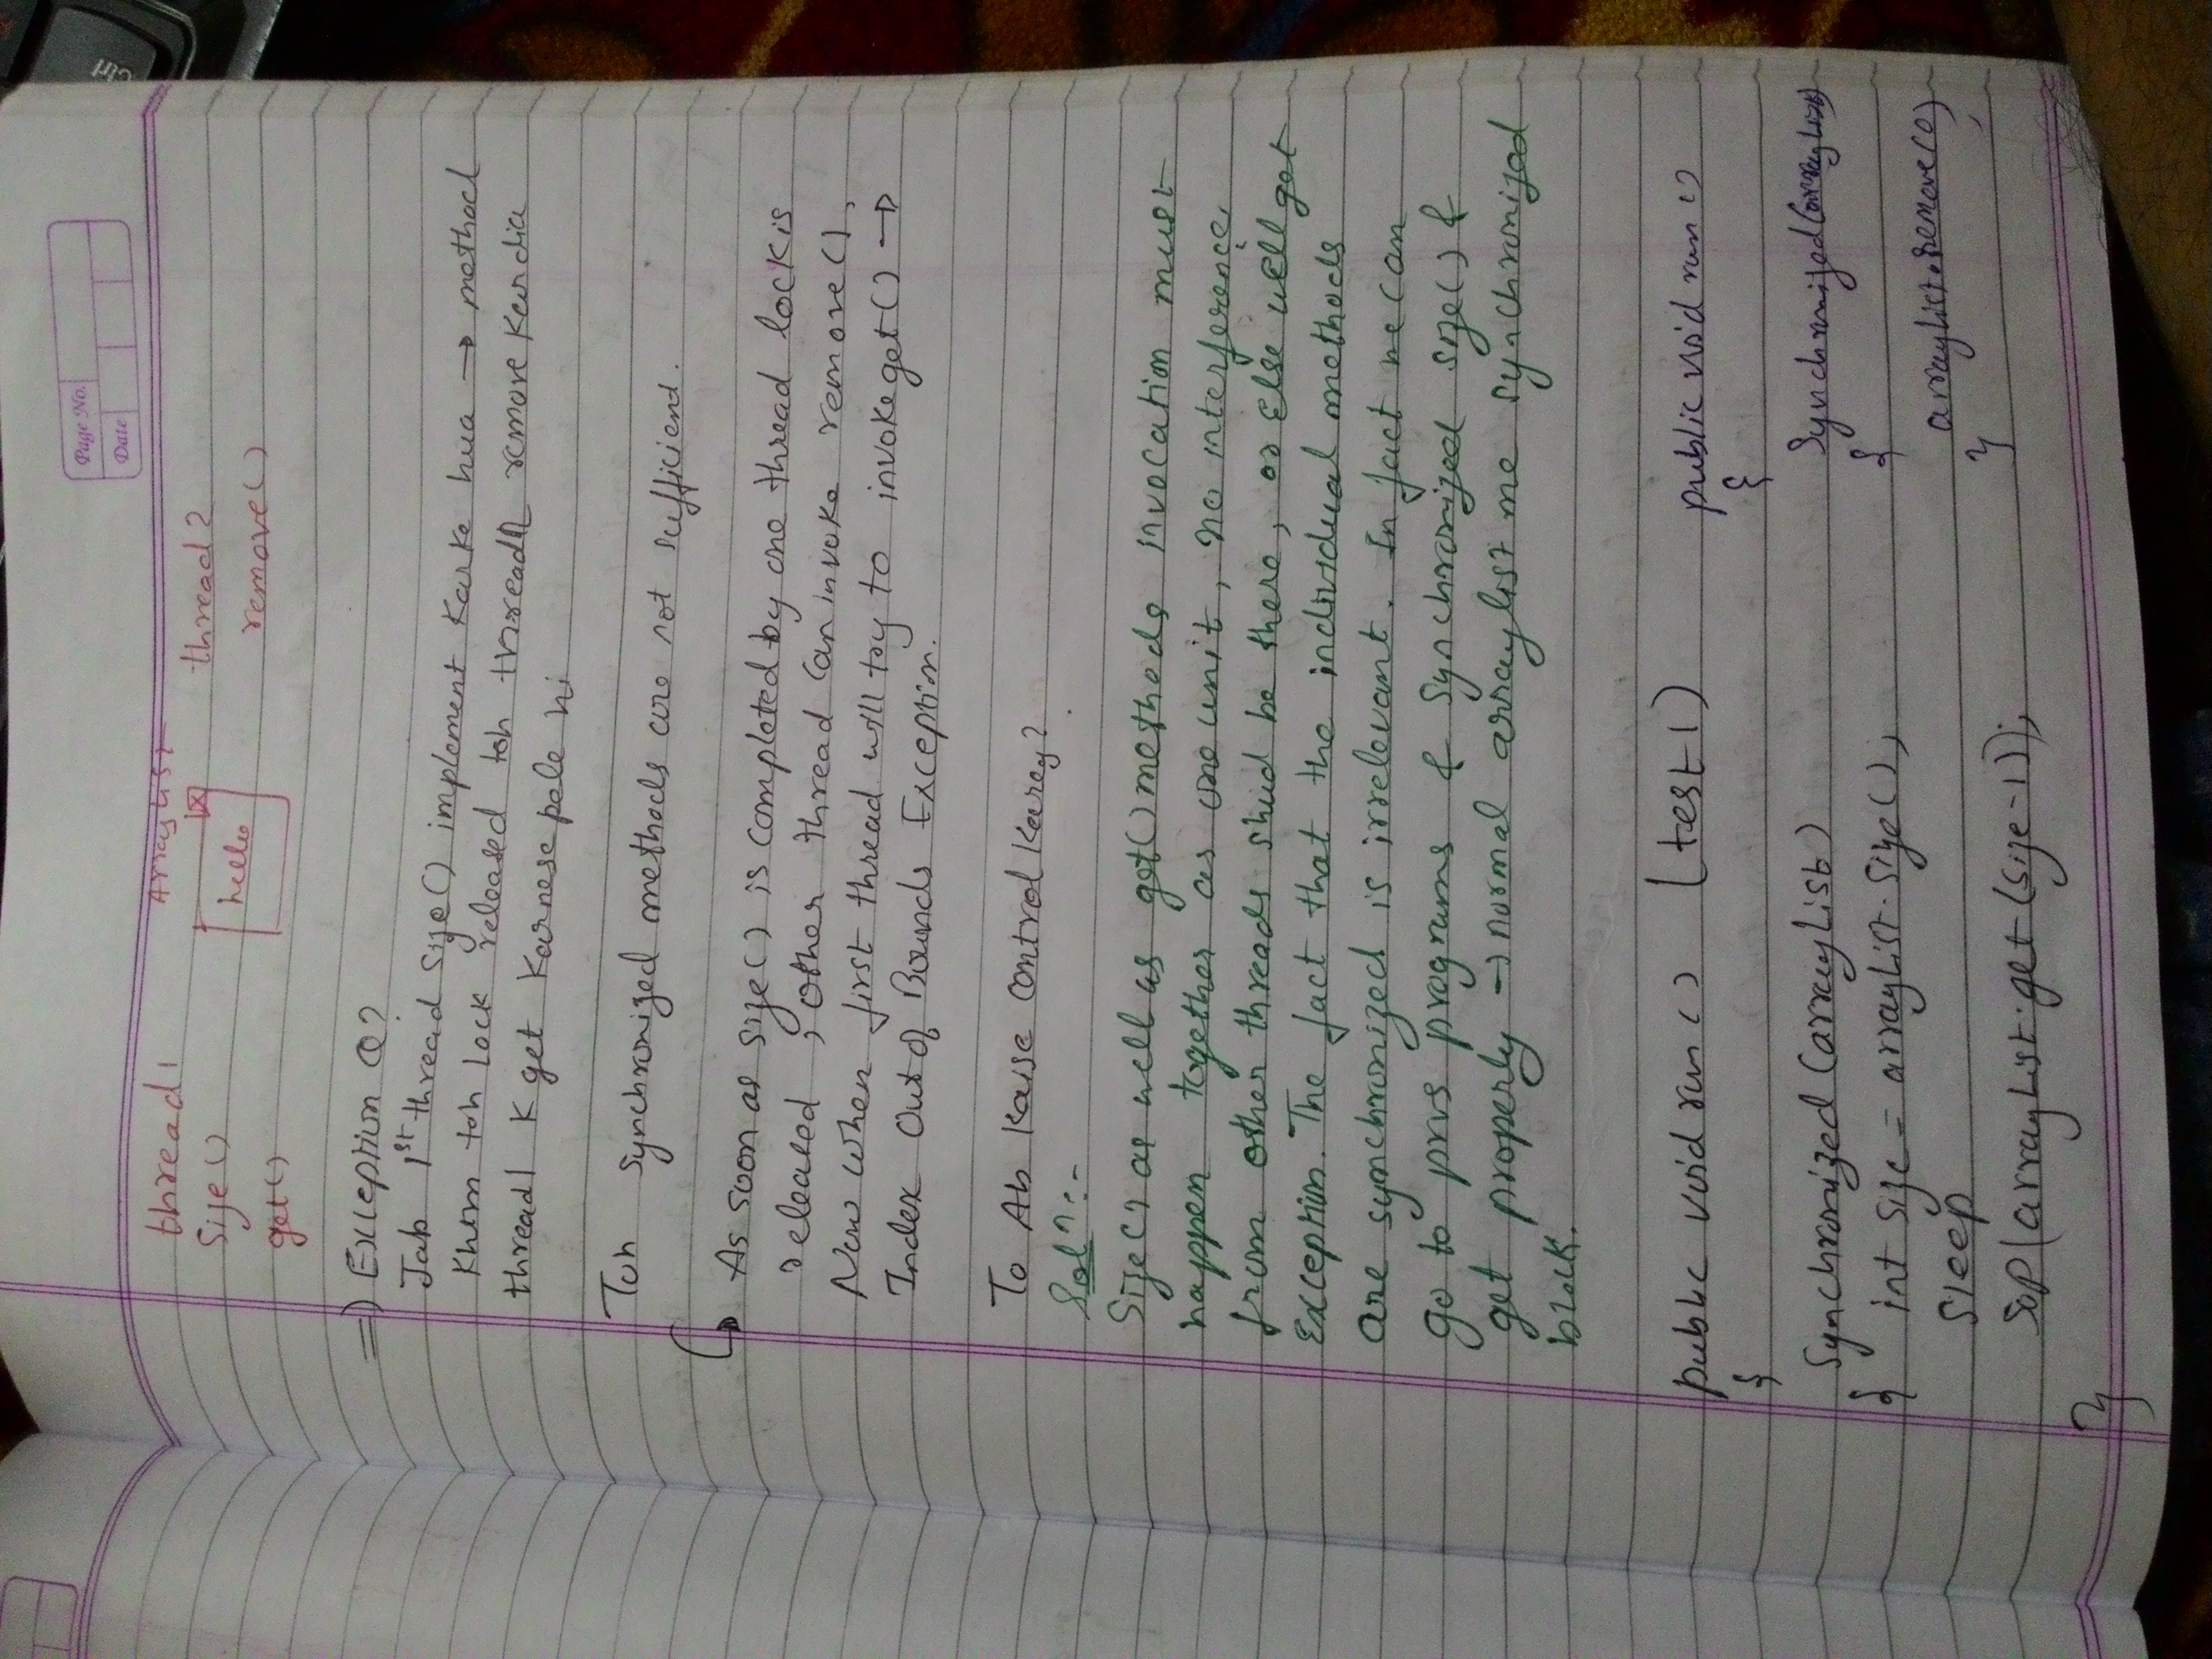 Page No.
Date
Ctrl
thread1
size()
get()
ArrayList
hello
thread2
remove()
=) Exception Q?
Jab 1st thread size() implement karke hua → method
khtm toh lock released toh thread2 remove kardia
thread1 k get karnese pele hi
Toh synchronized methods are not sufficient.
As soon as size() is completed by one thread lock is
released, other thread can invoke remove(),
Now when first thread will try to invoke get() →
Index Out of Bounds Exception.
To Ab kaise control karey?
Solⁿ:-
Size() as well as get() methods invocation must
happen together as one unit, no interference
from other threads shud be there, or else we'll get
Exception. The fact that the individual methods
are synchronized is irrelevant. In fact we can
go to prvs programs & synchronized size() &
get properly → normal arraylist me synchronized
block.
public void run() (test1)
{
Synchronized (arrayList)
{ int size = arrayList.size();
Sleep
SOP(arrayList.get(size-1));
}
public void run()
{
Synchronized(arrayList)
{
arraylist.remove(0)
}